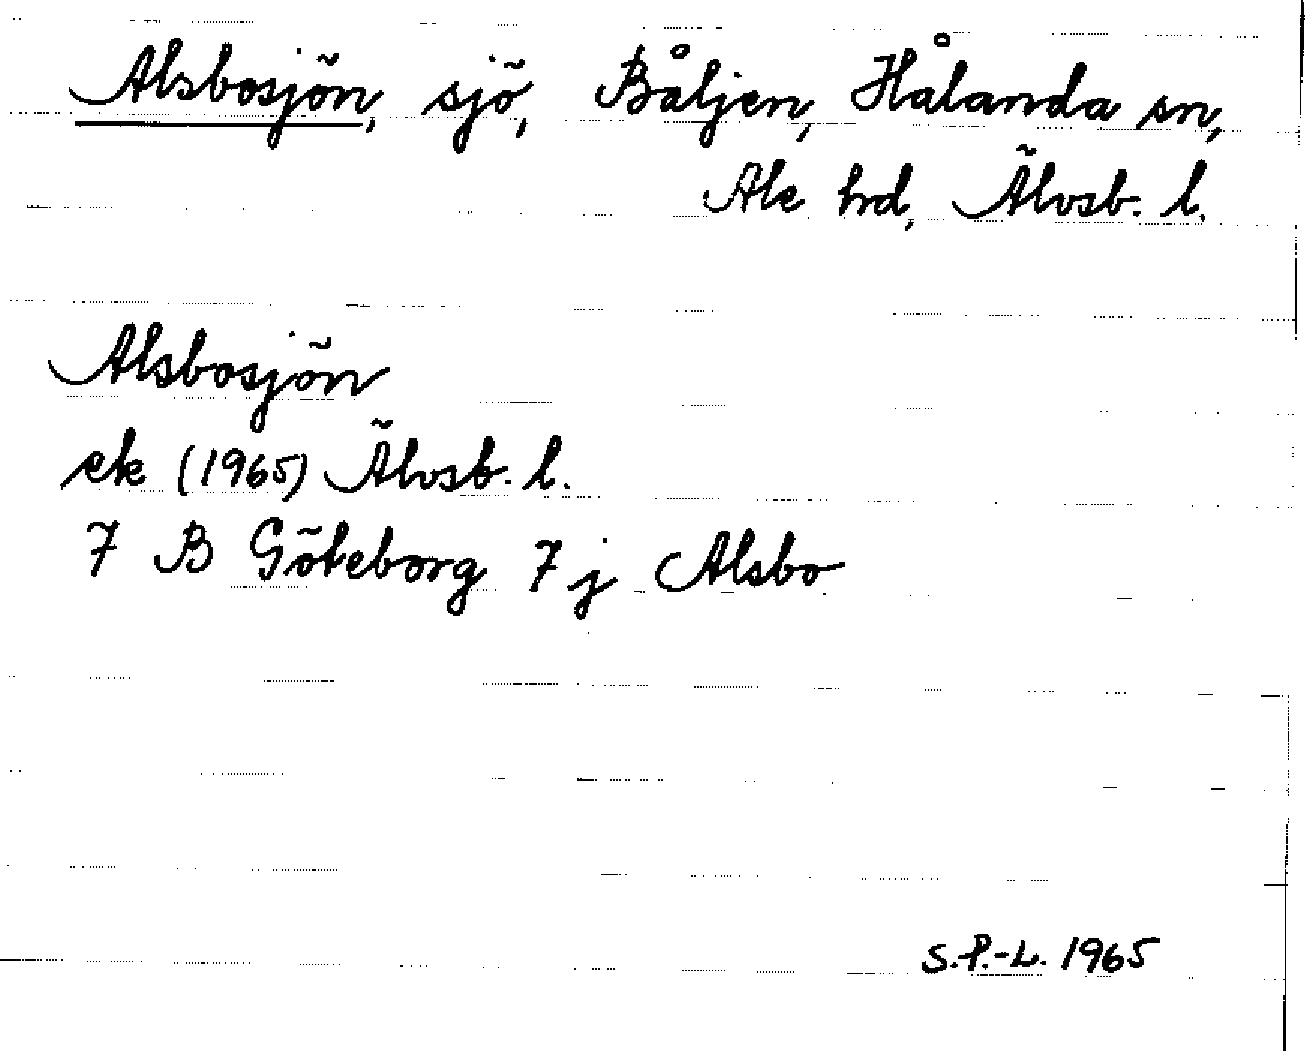 Alsbosjön, sjö, Båljen, Hålanda sn,
Ale hd, Älvsb. l.
Alsbosjön
ek (1965) Älvsb. l.
7 B Göteborg 7 j Alsbo
S.P.-L. 1965